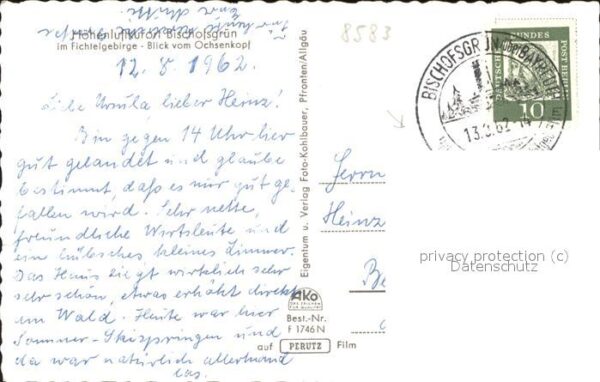 Höhenluftkurort Bischofsgrün
im Fichtelgebirge - Blick vom Ochsenkopf
12.8.1962.
Liebe Ursula, lieber Heinz!
Bin gegen 14 Uhr hier
gut gelandet und glaube
bestimmt, daß es mir gut ge-
fallen wird. Sehr nette,
freundliche Wirtsleute und
ein hübsches kleines Zimmer.
Das Haus liegt wirklich sehr
sehr schön, etwas erhöht direkt
im Wald. Heute war hier
Sommer-Skispringen und
da war natürlich allerhand
los.
Eigentum u. Verlag Foto-Kohlbauer, Pfronten/Allgäu
AKO
Best.-Nr.
F 1746 N
auf PERUTZ Film
8583
Herrn
Heinz
Be
BISCHOFSGRÜN über BAYREUTH
13.8.62-14
DEUTSCHE BUNDESPOST BERLIN
10
privacy protection (c)
Datenschutz